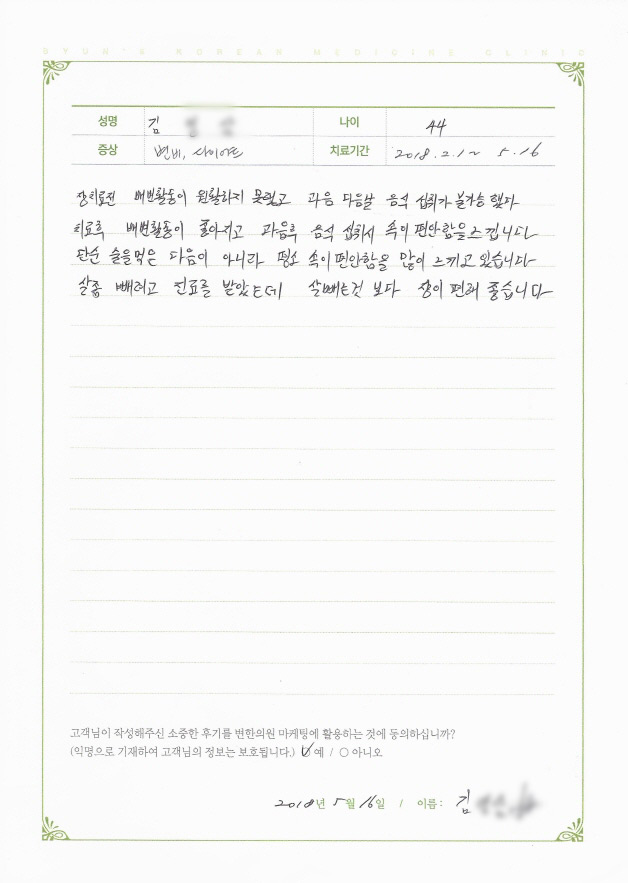 BYUN'S KOREAN MEDICINE CLINIC
성명 김 나이 44
증상 변비, 다이어트 치료기간 2018.2.1~ 5.16
장치료전 배변활동이 원활하지 못했고 과음 다음날 음식 섭취가 불가능 했다
치료후 배변활동이 좋아지고 과음후 음식 섭취시 속이 편안함을 느낍니다
단순 술을먹은 다음이 아니라 평소 속이 편안함을 많이 느끼고 있습니다
살좀 빼려고 진료를 받았는데 살빼는것 보다 장이 편해 좋습니다
고객님이 작성해주신 소중한 후기를 변한의원 마케팅에 활용하는 것에 동의하십니까?
(익명으로 기재하여 고객님의 정보는 보호됩니다.) 예 / 아니오
2018년 5월 16일 / 이름 : 김